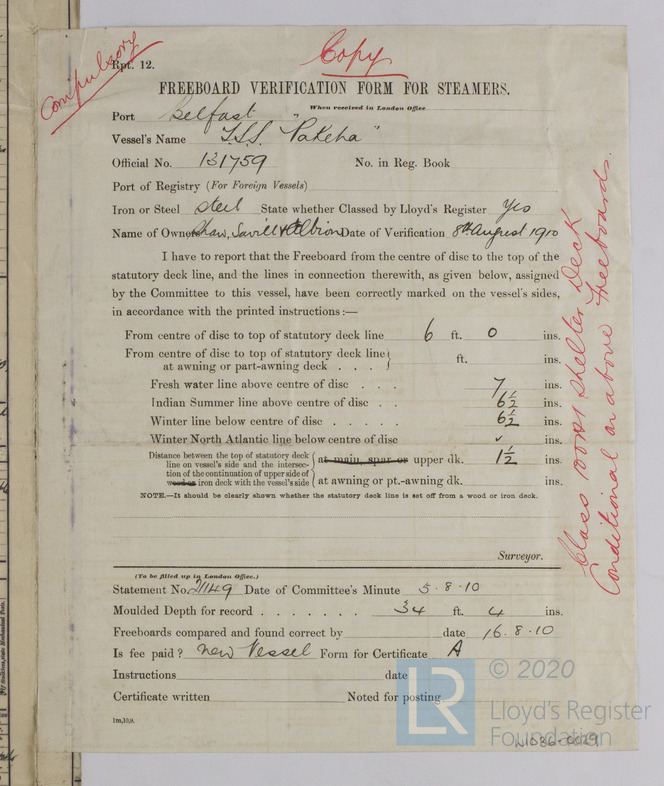 Compulsory
Rpt. 12.
Copy
FREEBOARD VERIFICATION FORM FOR STEAMERS.
When received in London Office
Port Belfast
Vessel's Name T.S.S. "Pakeha"
Official No. 131759 No. in Reg. Book
Port of Registry (For Foreign Vessels)
Iron or Steel Steel State whether Classed by Lloyd's Register Yes
Name of Owner Shaw, Savill & Albion Date of Verification 8th August 1910
I have to report that the Freeboard from the centre of disc to the top of the
statutory deck line, and the lines in connection therewith, as given below, assigned
by the Committee to this vessel, have been correctly marked on the vessel's sides,
in accordance with the printed instructions :—
From centre of disc to top of statutory deck line 6 ft. 0 ins.
From centre of disc to top of statutory deck line
at awning or part-awning deck . . . ft. ins.
Fresh water line above centre of disc . . . 7 ins.
Indian Summer line above centre of disc . . 6½ ins.
Winter line below centre of disc . . . . . 6½ ins.
Winter North Atlantic line below centre of disc ✓ ins.
Distance between the top of statutory deck
line on vessel's side and the intersec-
tion of the continuation of upper side of
wood or iron deck with the vessel's side
at main, spar or upper dk. 1½ ins
at awning or pt.-awning dk. ins.
NOTE.—It should be clearly shown whether the statutory deck line is set off from a wood or iron deck.
Surveyor.
(To be filled up in London Office.)
Statement No. 21149 Date of Committee's Minute 5.8.10
Moulded Depth for record . . . . . . . 34 ft. 4 ins.
Freeboards compared and found correct by date 16.8.10
Is fee paid? New Vessel Form for Certificate A
Instructions date
Certificate written Noted for posting
1m,10,9.
Class 100A1 Shelter Deck
Conditional on above Freeboards.
LR
© 2020
Lloyd's Register
Foundation
W1036-0029